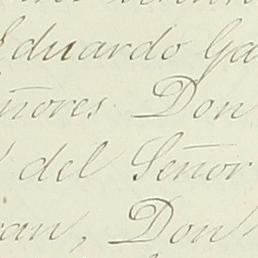 Eduardo Ga
ñores Don
del Señor
an, Don